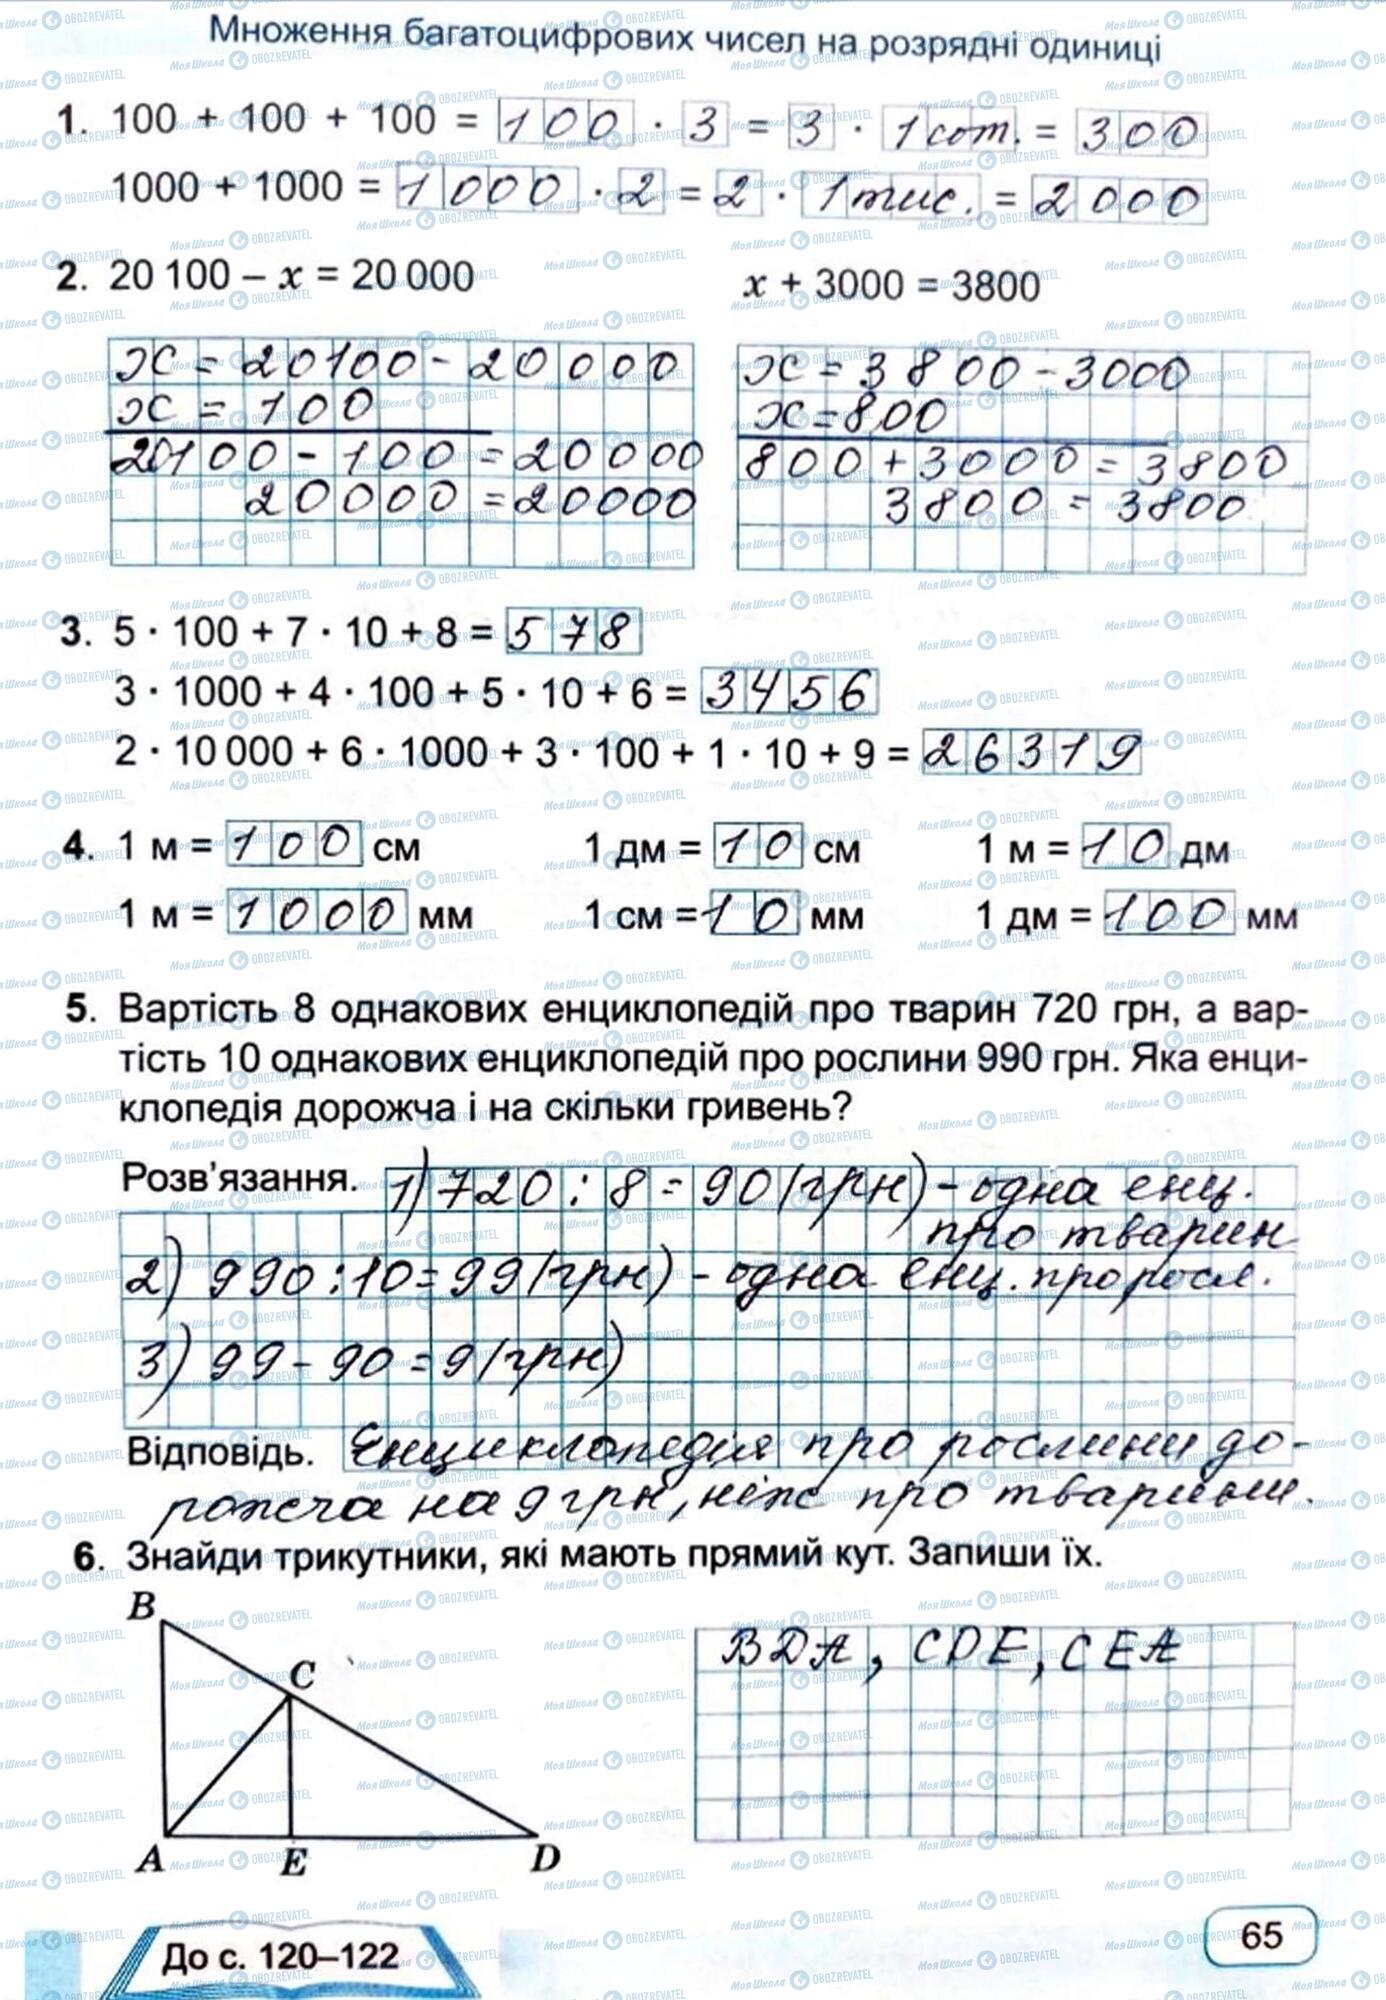 Множення багатоцифрових чисел на розрядні одиниці
1. 100 + 100 + 100 = 100 · 3 = 3 · 1 сот. = 300
1000 + 1000 = 1000 · 2 = 2 · 1 тис. = 2000
2. 20 100 – x = 20 000
x + 3000 = 3800
x = 20100 - 20000
x = 100
20100 - 100 = 20000
20000 = 20000
x = 3800 - 3000
x = 800
800 + 3000 = 3800
3800 = 3800
3. 5 · 100 + 7 · 10 + 8 = 578
3 · 1000 + 4 · 100 + 5 · 10 + 6 = 3456
2 · 10 000 + 6 · 1000 + 3 · 100 + 1 · 10 + 9 = 26319
4. 1 м = 100 см 1 дм = 10 см 1 м = 10 дм
1 м = 1000 мм 1 см = 10 мм 1 дм = 100 мм
5. Вартість 8 однакових енциклопедій про тварин 720 грн, а вар-
тість 10 однакових енциклопедій про рослини 990 грн. Яка енци-
клопедія дорожча і на скільки гривень?
Розв’язання. 1) 720 : 8 = 90 (грн) - одна енц.
про тварин
2) 990 : 10 = 99 (грн) - одна енц. про росл.
3) 99 - 90 = 9 (грн)
Відповідь. Енциклопедія про рослини до-
рожча на 9 грн, ніж про тварини.
6. Знайди трикутники, які мають прямий кут. Запиши їх.
B
C
A E D
BDA, CDE, CEA
До с. 120–122
65